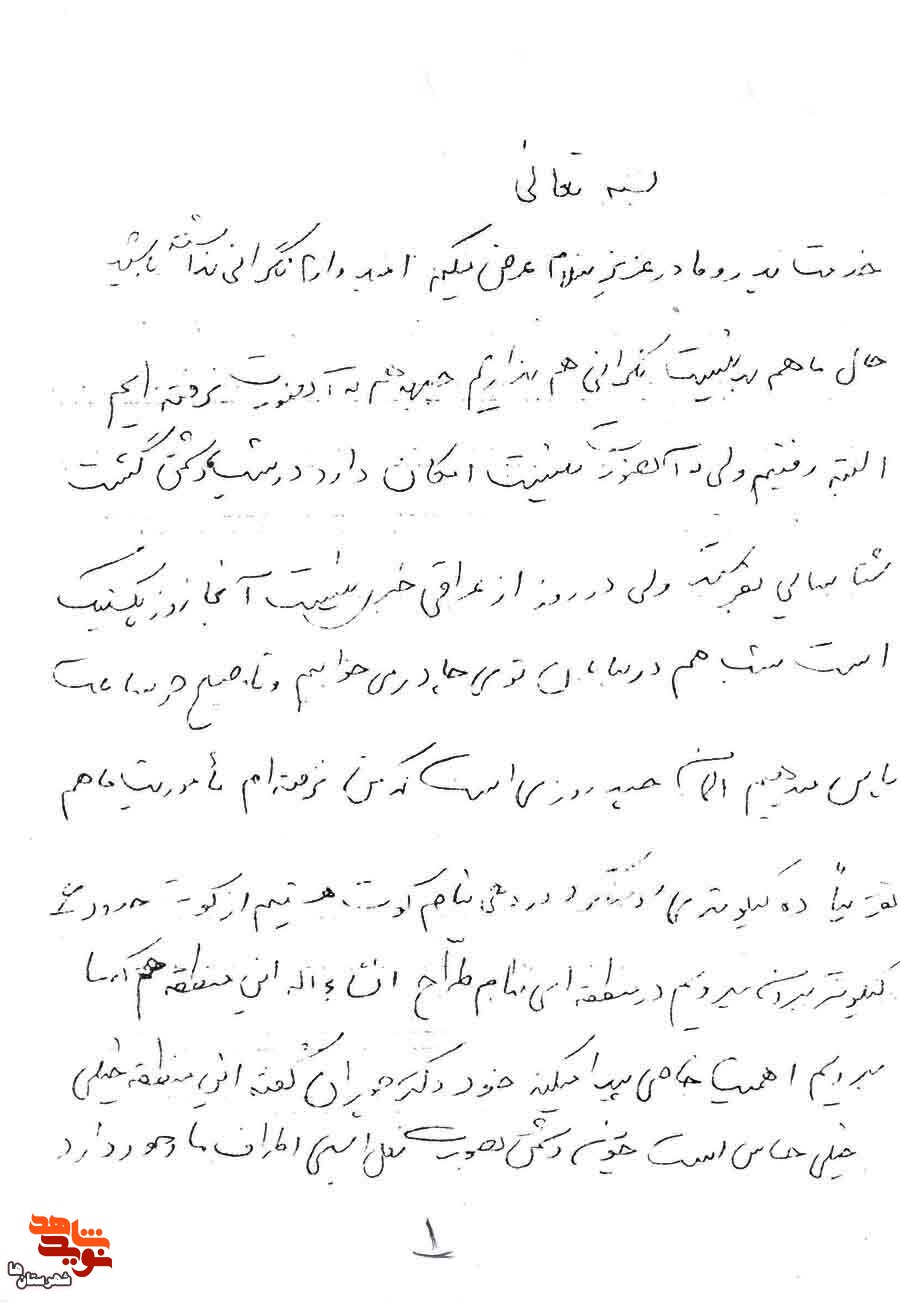 بسمه تعالی
خدمت پدر و مادر عزیز سلام عرض میکنم امیدوارم نگرانی نداشته باشید
حال ما هم بد نیست نگرانی هم نداریم جبهه هم به آنصورت نرفته ایم
البته رفتیم ولی به آنصورت نیست امکان دارد در شب دشمن گشت
شناسایی بفرستد ولی در روز از عراقی خبری نیست آنجا روز پیکنیک
است شب هم در بیابان توی چادر می خوابیم و تا صبح هر ساعت
پاس میدهیم الان چند روزی است که من نرفته ام مأموریت ما هم
تقریباً ده کیلومتری در دهی بنام کوت هستیم از کوت حدود
کیلومتر بیرون میرویم در منطقه ای بنام طراح انشاءاله این منطقه هم که ما
میرویم اهمیت خاصی پیدا میکند خود دکتر چمران گفته این منطقه خیلی
خیلی حساس است چون دشمن بصورت نعل اسبی اطراف ما وجود دارد
۱
نوید شاهد
شهرستان ها